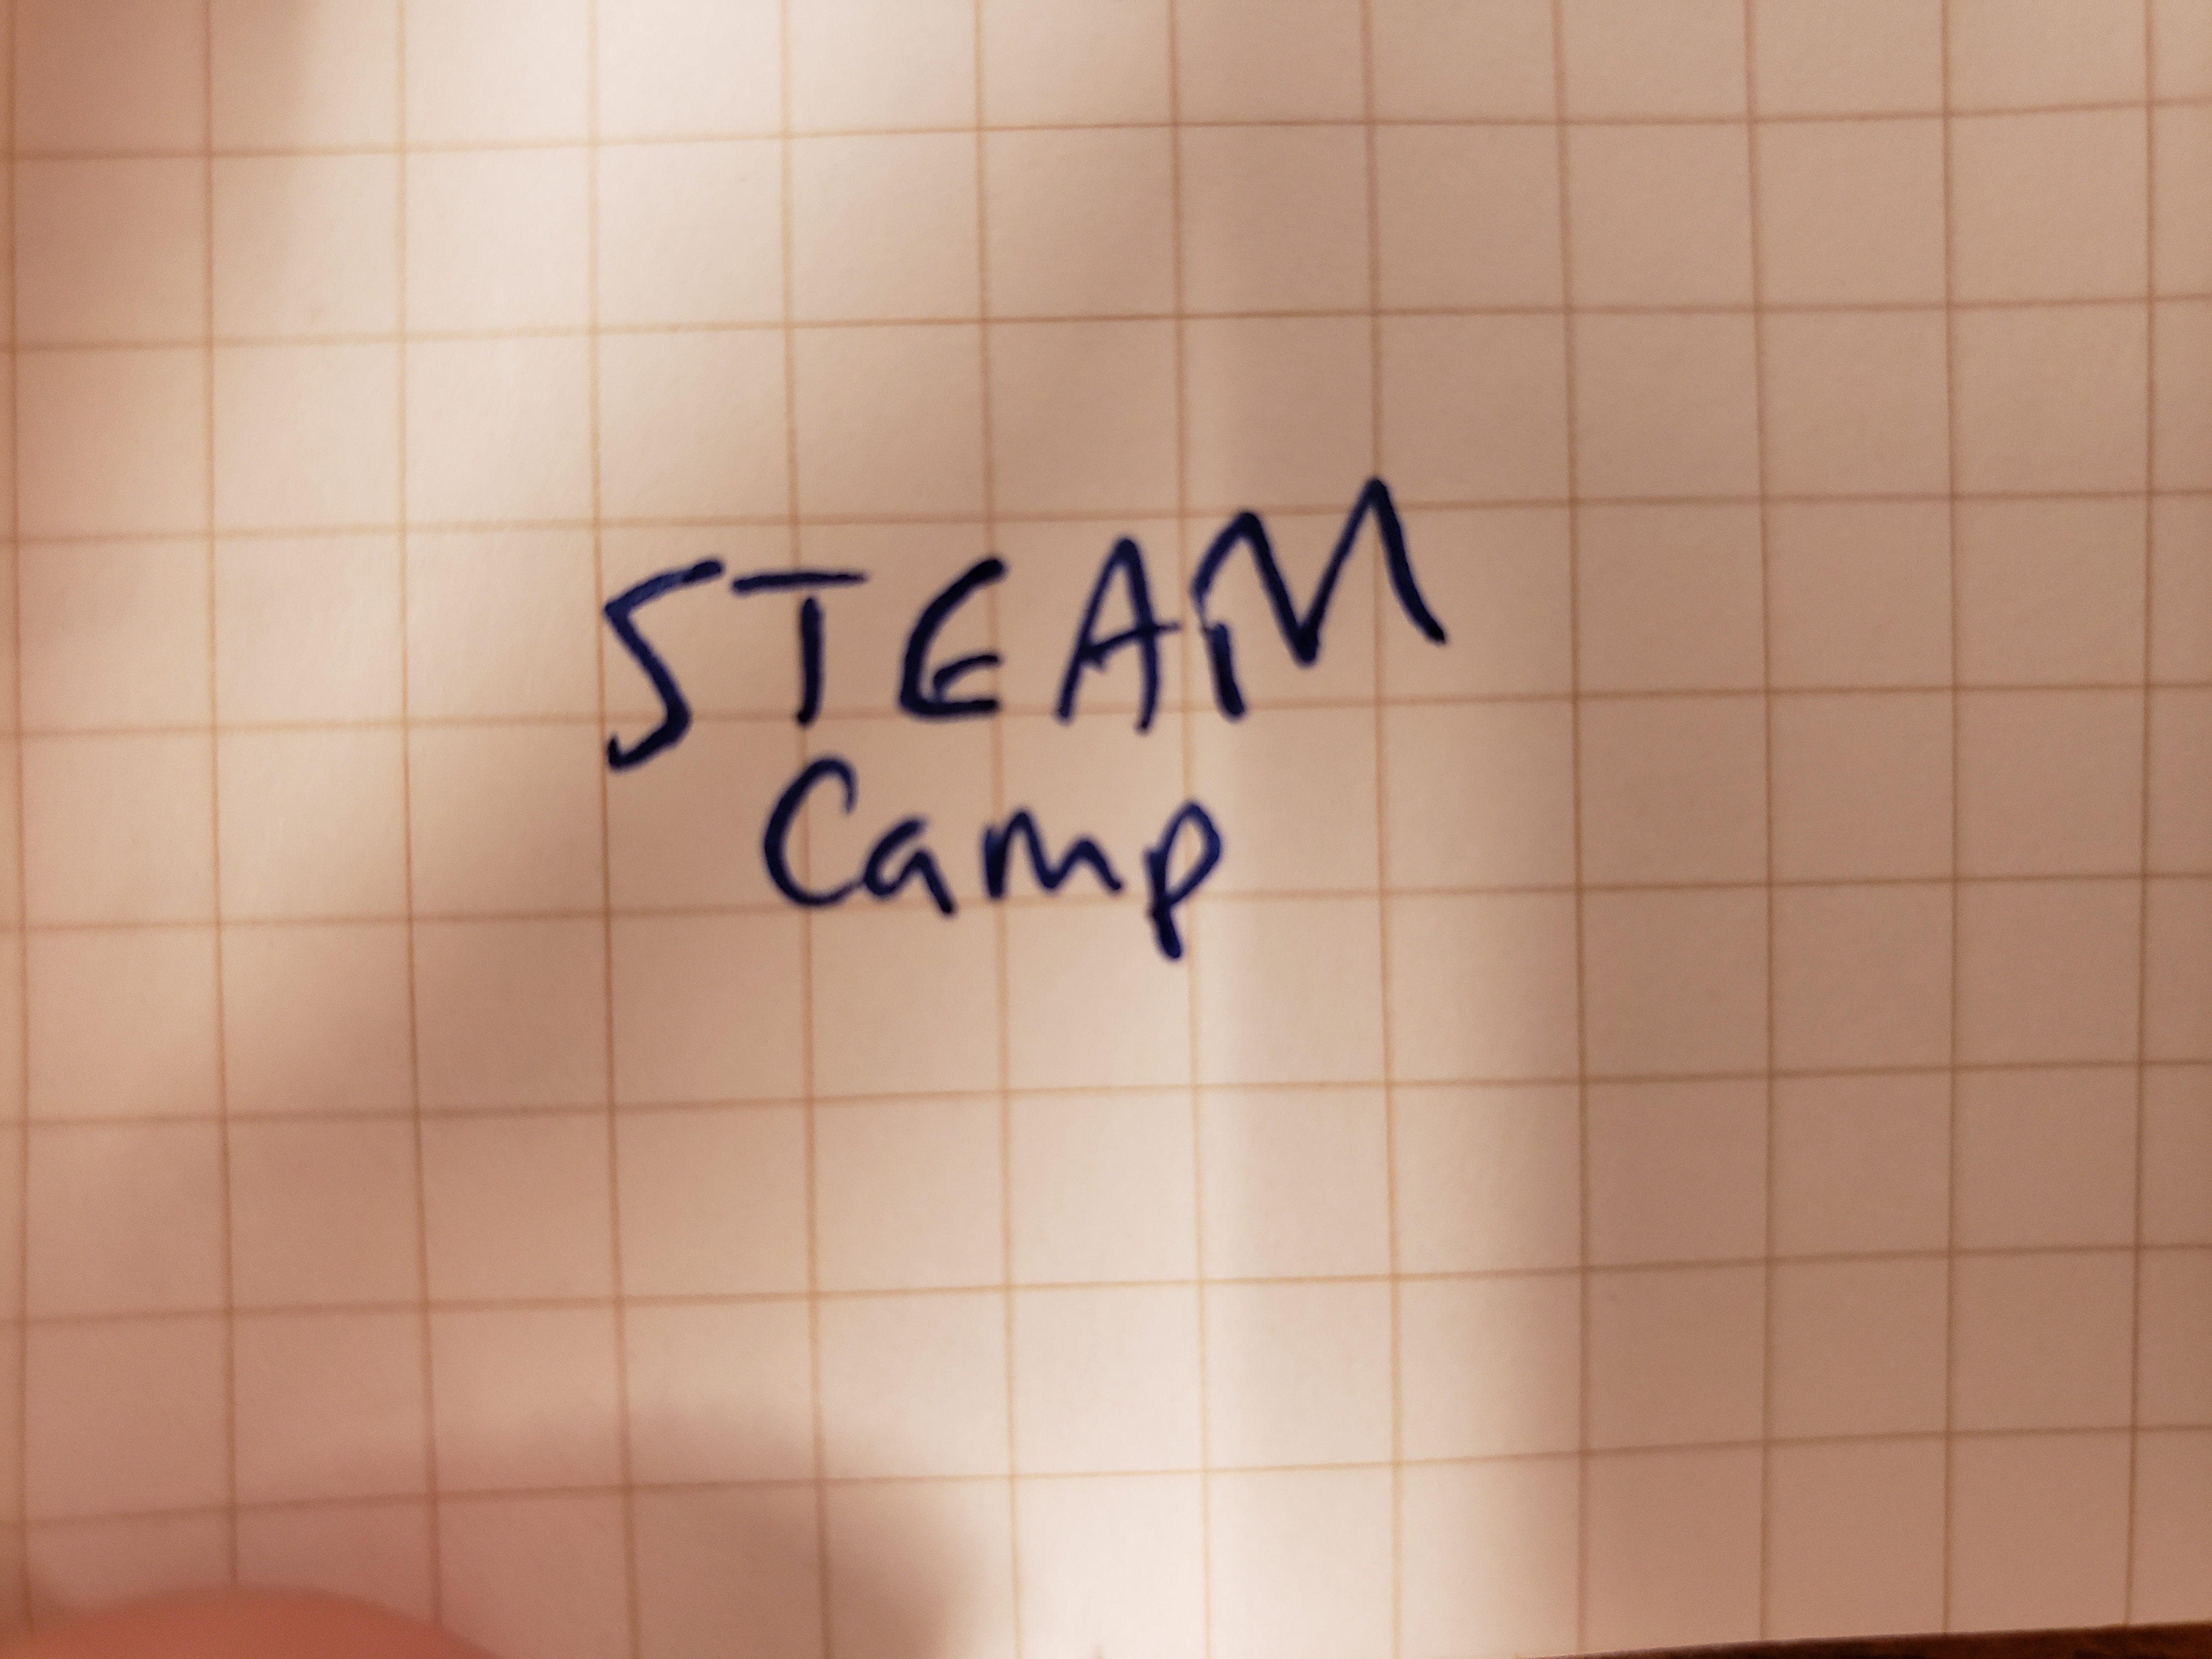 STEAM
Camp